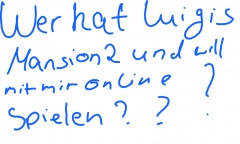 Wer hat Luigis
Mansion 2 und will
mit mir online ?
Spielen ? ?